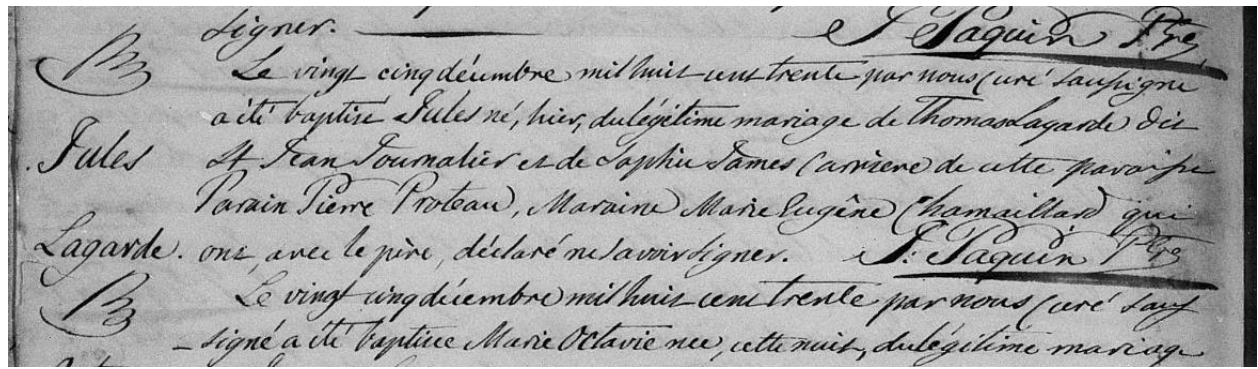 signer. J. Paquin Ptre
B Le vingt cinq décembre mil huit cent trente par nous curé soussigné
a été baptisé Jules né, hier, du légitime mariage de Thomas Lagarde dit
Jules St Jean Journalier et de Sophie James Carriere de cette paroisse
Parain Pierre Proteau, Maraine Marie Eugène Chamaillard qui
Lagarde. ont, avec le père, déclaré ne savoir signer. J. Paquin Ptre
B Le vingt cinq décembre mil huit cent trente par nous curé sous
signé a été baptisée Marie Octavie née, cette nuit, du légitime mariage